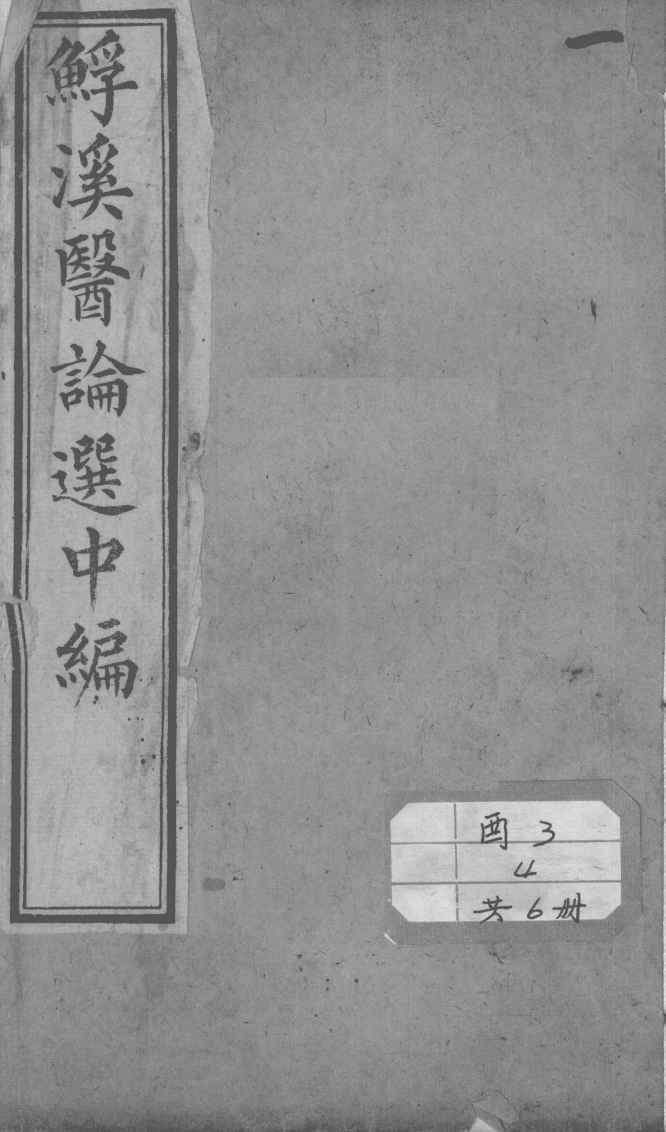 鯚溪醫論選中編
一
酉 3
4
共 6 册